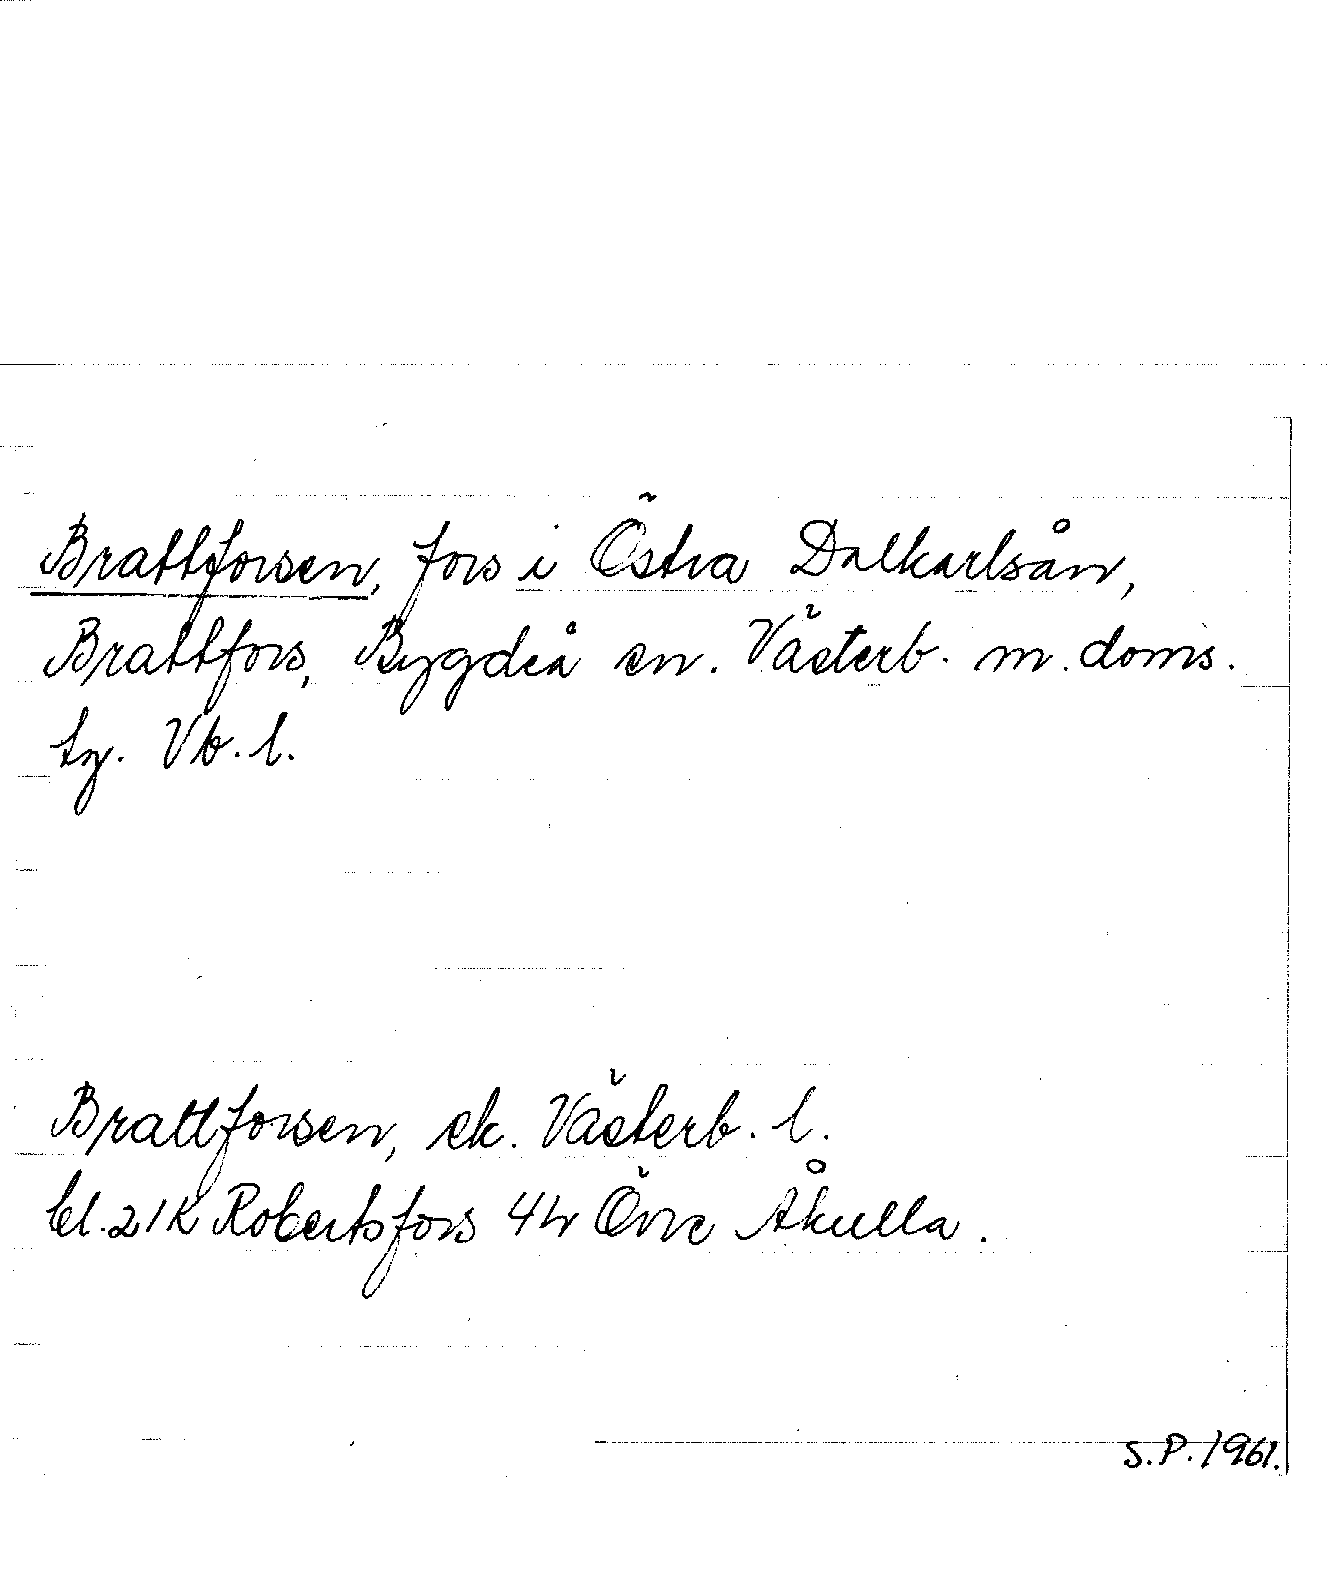 Brattforsen, fors i Östra Dalkarlsån,
Brattfors, Bygdeå sn. Västerb. m. doms.
tg. Vb. l.
Brattforsen, ek. Västerb. l.
bl. 21K Robertsfors 4h Övre Åkulla.
S.P. 1961.